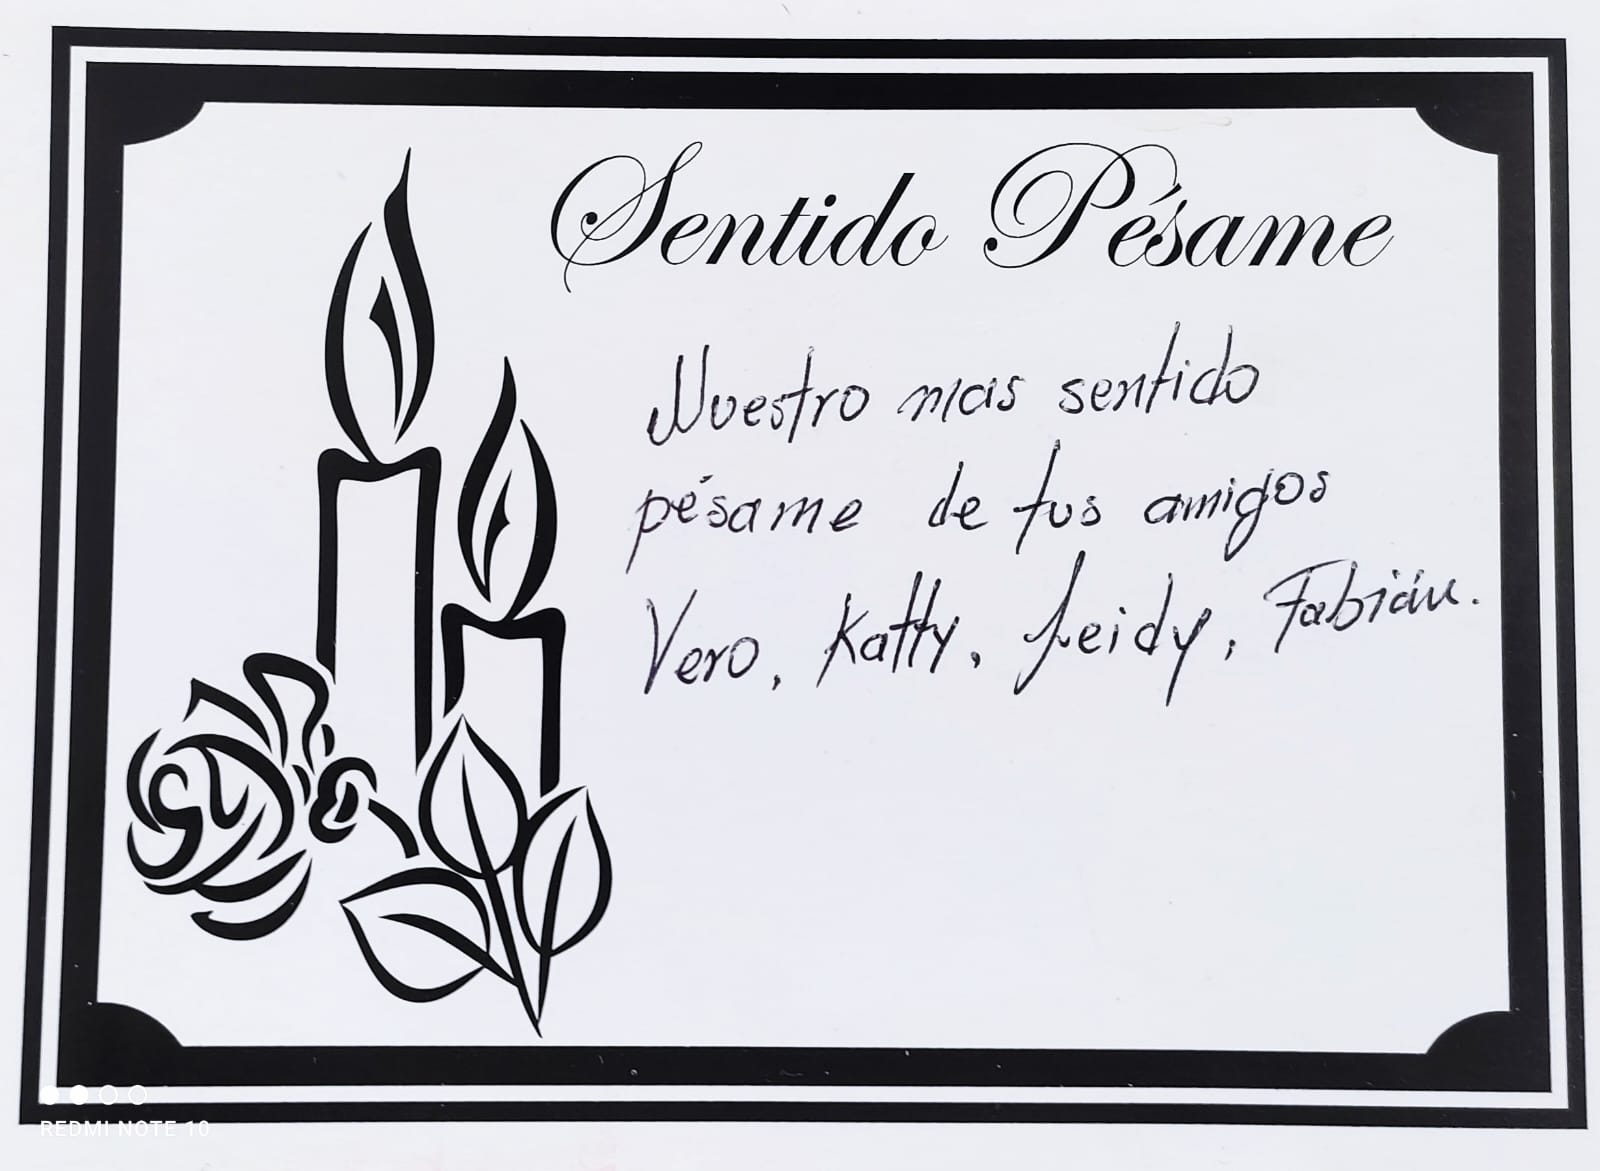 Sentido Pésame
Nuestro mas sentido
pésame de tus amigos
Vero, Katty, Leidy, Fabián.
REDMI NOTE 10